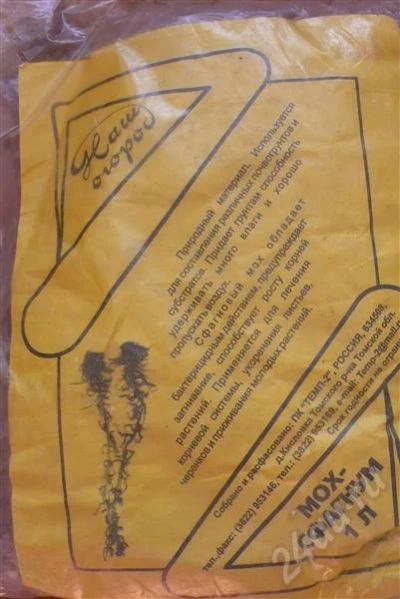 Наш
огород
Природный материал. Используется
для составления различных почвогрунтов и
субстратов. Придает грунтам способность
удерживать много влаги и хорошо
пропускать воздух.
Сфагновый мох обладает
бактерицидным действием, предупреждает
загнивание, способствует росту корней
растений. Применяется для лечения
корневой системы, укоренения листьев,
черенков и приживания молодых растений.
Собрано и расфасовано: ПК "ТЕМП-2", РОССИЯ, 634508,
д.Кисловка Томского р-на Томской обл.
тел.,факс: (3822) 953146, тел.: (3822) 953169, e-mail: temp-2@mail.
Срок годности не огран
МОХ-
СФАГНУМ
1 Л